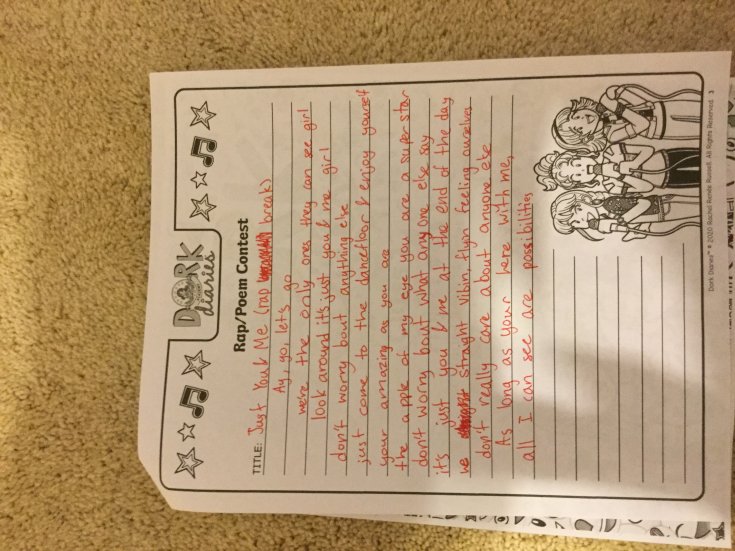 DORK
diaries
Rap/Poem Contest
TITLE: Just You & Me (rap break)
Ay, go, let's go
we're the only ones they can see girl
look around it's just you & me girl
don't worry bout anything else
just come to the dancefloor & enjoy yourself
your amazing as you are
the apple of my eye you are a super star
don't worry bout what anyone else say
it's just you & me at the end of the day
we straight vibin, flyn feeling ourselves
don't really care about anyone else
As long as your here with me,
all I can see are possibilities
Dork Diaries™ © 2020 Rachel Renée Russell. All Rights Reserved. 3